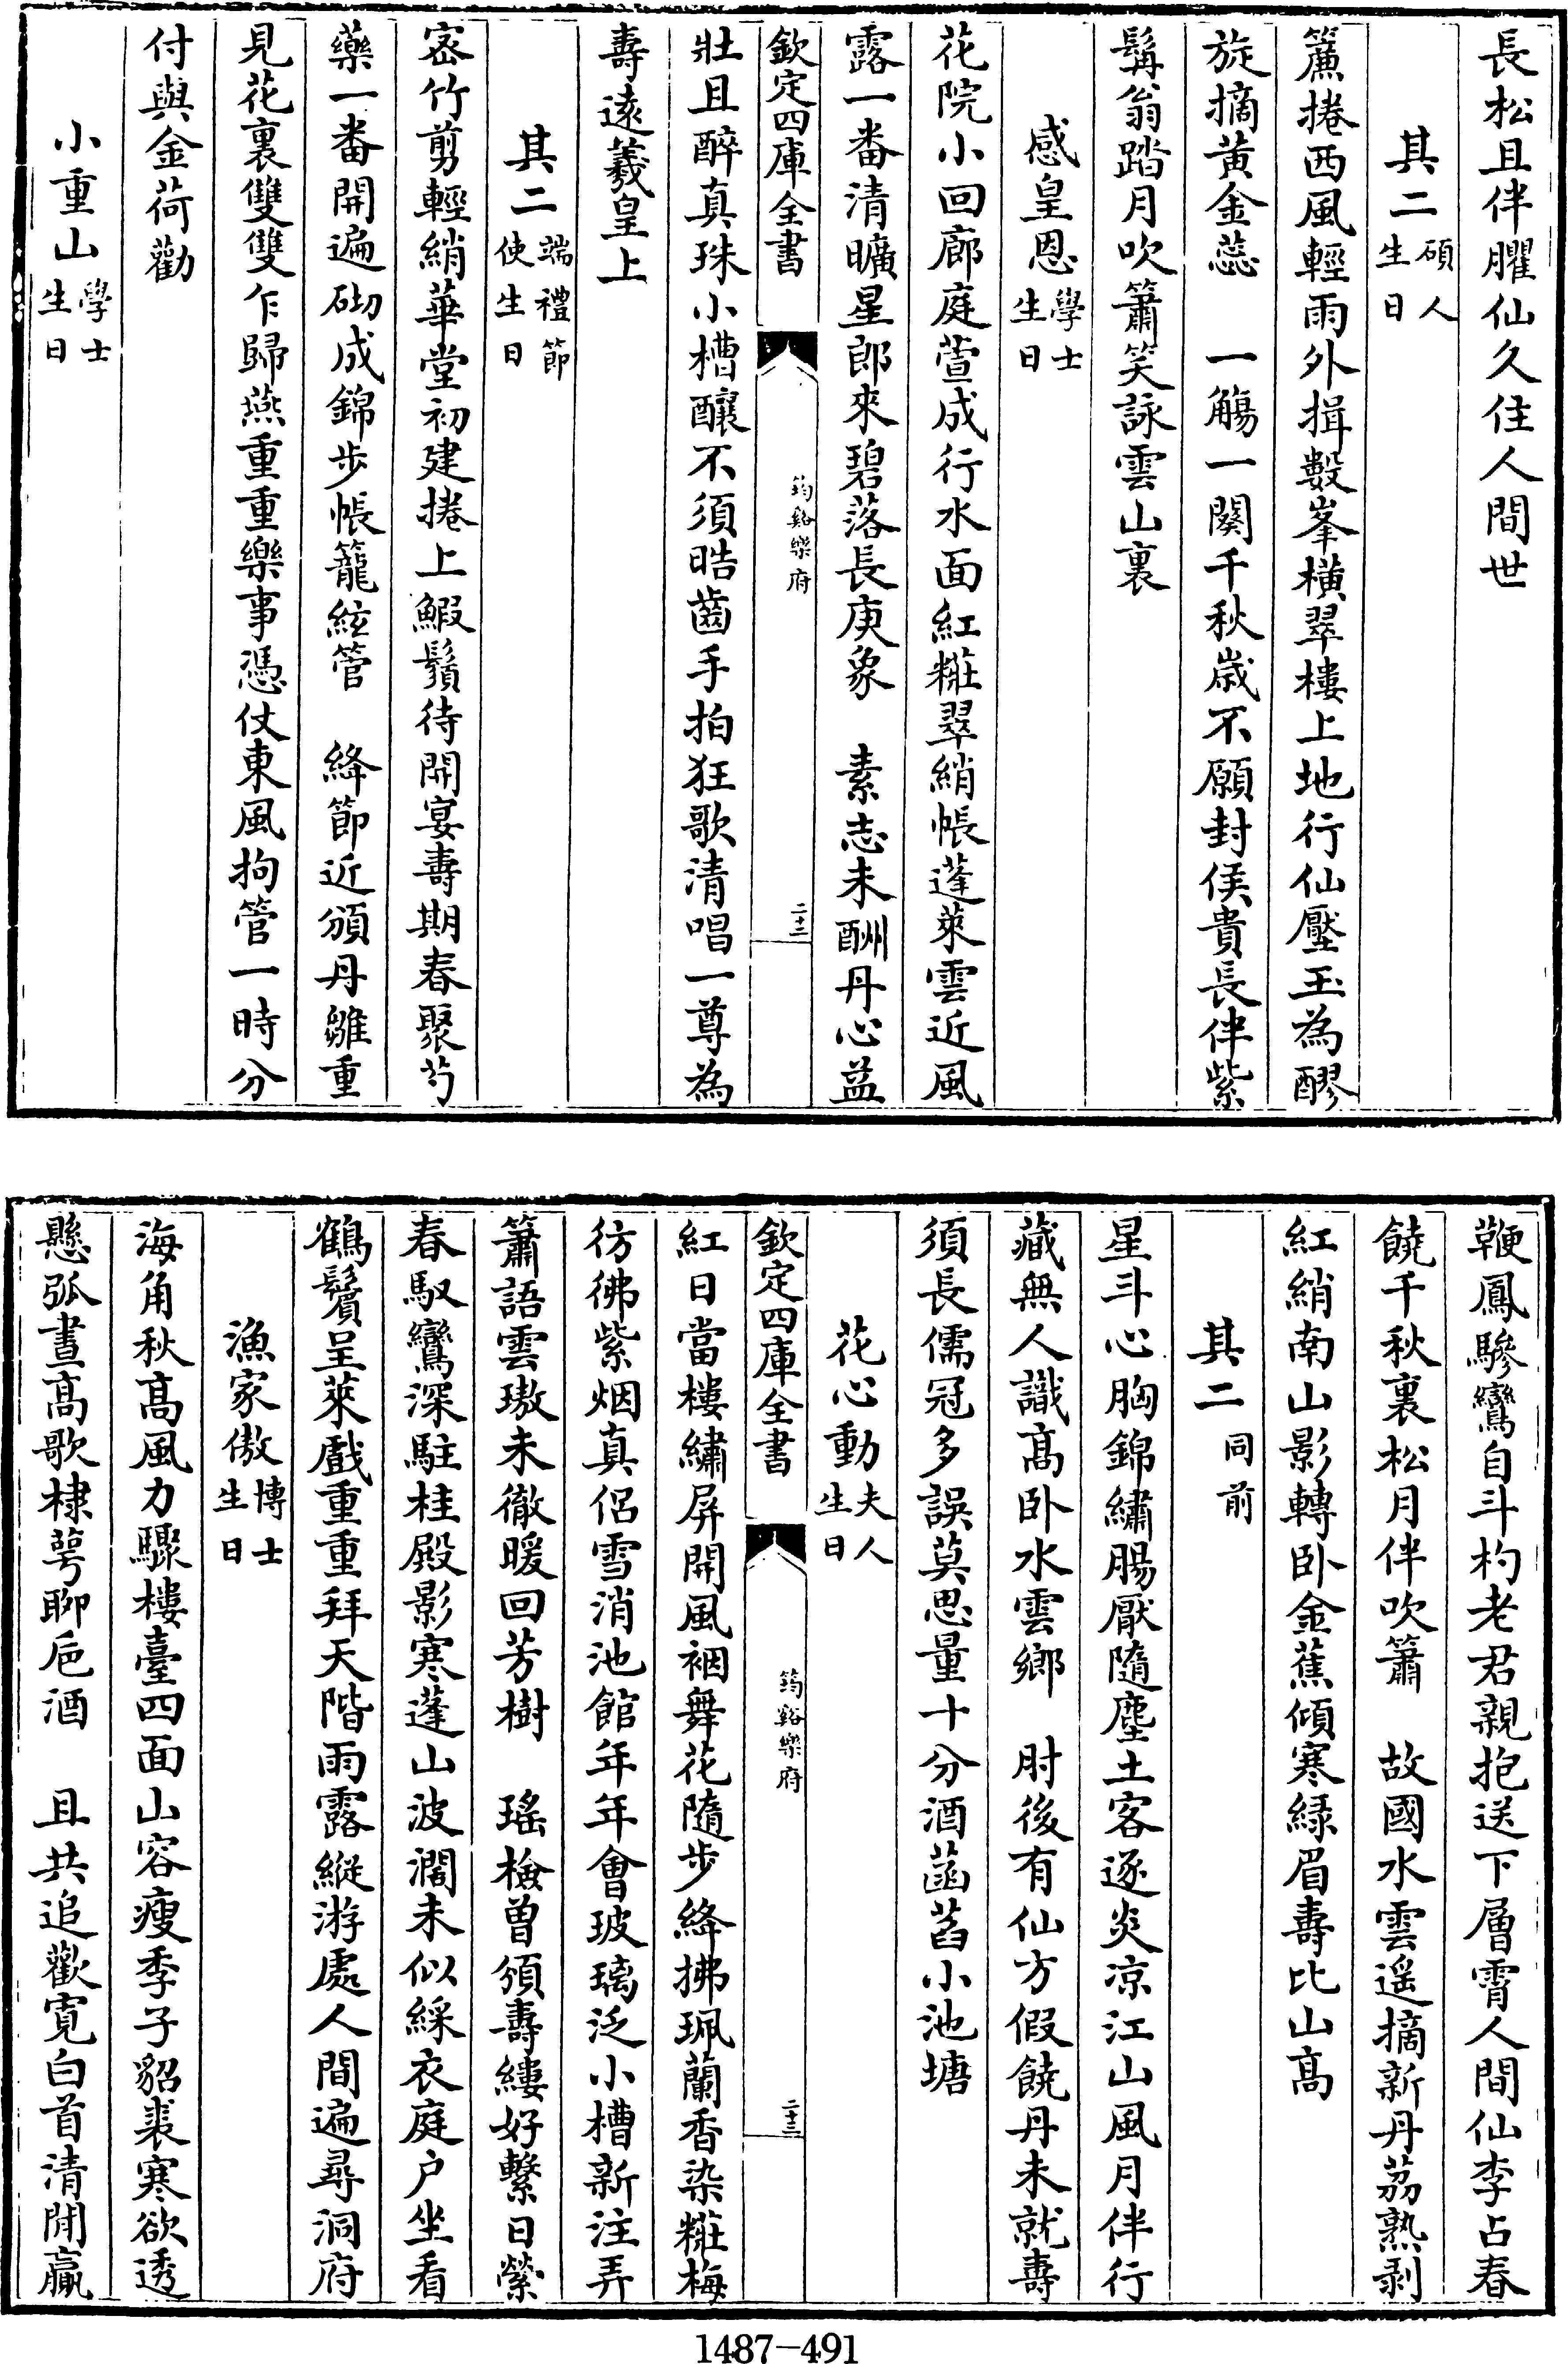 長松且伴臞仙久住人間世
其二碩人生日
簾捲西風輕雨外揖數峯橫翠樓上地行仙壓玉為醪
旋摘黃金蕊　一觴一闋千秋歲不願封侯貴長伴紫
髯翁踏月吹簫笑詠雲山裏
感皇恩學士生日
花院小回廊庭萱成行水面紅糚翠綃帳蓬萊雲近風
露一番清曠星郎來碧落長庚象　素志未酬丹心益
欽定四庫全書
筠谿樂府
二十二
壯且醉真珠小槽釀不須皓齒手拍狂歌清唱一尊為
壽遠羲皇上
其二端禮節使生日
密竹剪輕綃華堂初建捲上鰕鬚待開宴壽期春聚芍
藥一番開遍砌成錦步帳籠絃管　絳節近頒丹雛重
見花裏雙雙乍歸燕重重樂事憑仗東風拘管一時分
付與金荷勸
小重山學士生日
鞭鳳驂鸞自斗杓老君親抱送下層霄人間仙李占春
饒千秋裏松月伴吹簫　故國水雲遥摘新丹荔熟剥
紅綃南山影轉卧金蕉傾寒緑眉壽比山高
其二同前
星斗心胸錦繡腸厭隨塵土客逐炎凉江山風月伴行
藏無人識高卧水雲鄉　肘後有仙方假饒丹未就壽
須長儒冠多誤莫思量十分酒菡萏小池塘
花心動夫人生日
欽定四庫全書
筠谿樂府
二十三
紅日當樓繡屏開風裀舞花隨步絳拂珮蘭香染糚梅
彷彿紫烟真侶雪消池館年年會玻璃泛小槽新注弄
簫語雲璈未徹暖回芳樹　瑤檢曾頒壽縷好繫日縈
春馭鸞深駐桂殿影寒蓬山波濶未似綵衣庭户坐看
鶴鬢呈萊戲重重拜天階雨露縱游處人間遍尋洞府
漁家傲博士生日
海角秋高風力驟樓臺四面山容瘦季子貂裘寒欲透
懸弧晝高歌棣萼聊巵酒　且共追歡寬白首清閒贏
1487-491